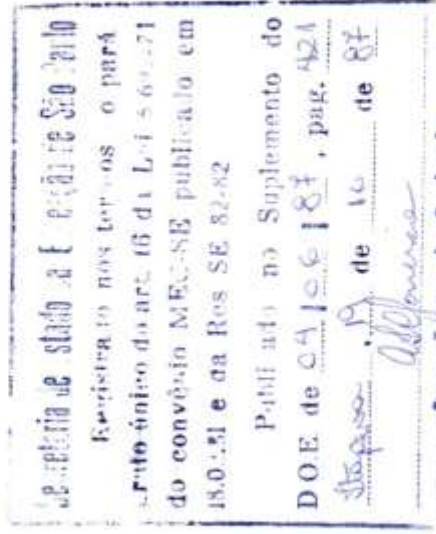 Secretaria de Estado da Educação de São Paulo
Registrado nos termos o pará
grafo único do art. 16 da Lei 5.692-71
do convênio MEC-SE publicado em
e da Res SE 82-82
Publicado no Suplemento do
DOE de 09/06/87, pag. 421
19 de 10 de 87